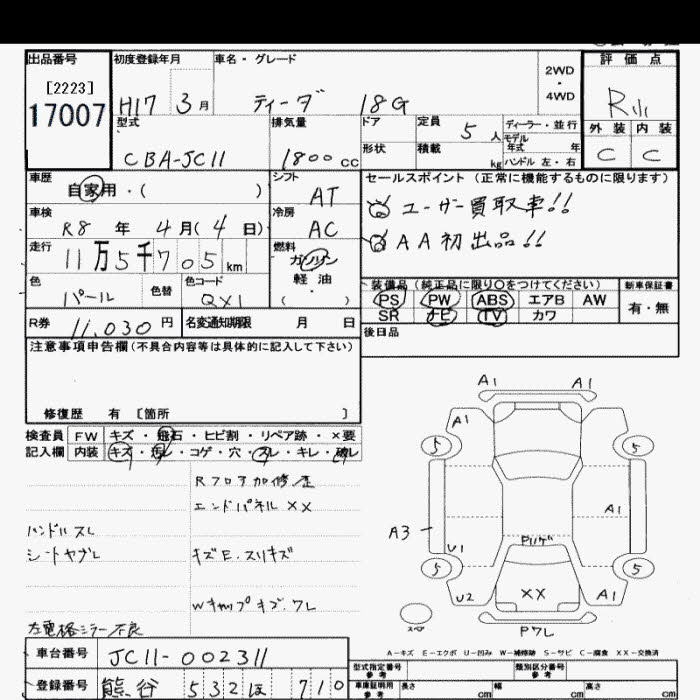 出品番号
[2223]
17007
初度登録年月
H17 3月
車名・グレード
ティーダ 18G
2WD
・
4WD
評価点
R
外装 内装
C C
型式
CBA-JC11
排気量
1800cc
ドア
形状
定員
5人
積載
kg
ディーラー・並行
モデル
年式 年
ハンドル 左・右
車歴
自家用・( )
シフト
AT
車検
R8年 4月(4日)
冷房
AC
走行
11万5千705km
燃料
ガソリン
軽油
( )
色
パール
色替
色コード
QX1
R券
11,030円
名変通知期限 月 日
セールスポイント (正常に機能するものに限ります)
ユーザー買取車!!
AA初出品!!
装備品(純正品に限り○をつけてください)
PS PW ABS エアB AW
SR ナビ TV カワ
新車保証書
有・無
後日品
注意事項申告欄(不具合内容等は具体的に記入して下さい)
修復歴 有 〔箇所 〕
検査員 FW キズ・飛石・ヒビ割・リペア跡・×要
記入欄 内装 キズ・汚レ・コゲ・穴・スレ・キレ・破レ
Rフロア加修歪
エンドパネル XX
ハンドルスレ
シートヤブレ
キズE.スリキズ
Wキャップキズ.ワレ
左電格ミラー不良
A1 A1
A1
5 5
A3
A1
U1
Pリゲ
5 5
U2
XX
A1
スペア
Pワレ
A-キズ E-エクボ U-凹み W-補修跡 S-サビ C-腐食 XX-交換済
車台番号
JC11-002311
登録番号
熊谷 532 ほ 710
型式指定番号
参考
類別区分番号
参考
車庫証明用
参考
長さ cm
幅 cm
高さ cm